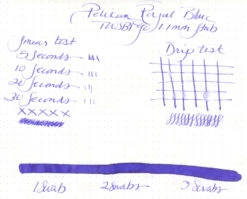 Pelikan Royal Blue
1.1mm stub
Smear test
5 seconds
10 seconds
20 seconds
30 seconds
XXXXX
Drip test
1 swab
2 swabs
3 swabs